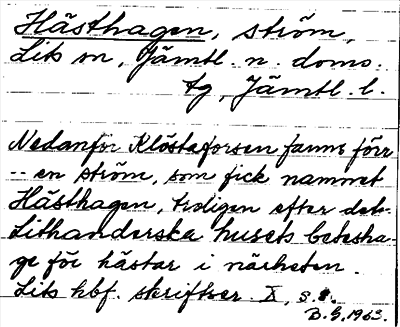 Hästhagen, ström,
Lits sn, Jämtl. n. doms.
tg, Jämtl. l.
Nedanför Klöstaforsen fanns förr
-- en ström, som fick namnet
Hästhagen, troligen efter det
Lithanderska husets betesha-
ge för hästar i närheten.
Lits hbf. skriftser. X, s. 8.
B.G. 1963.